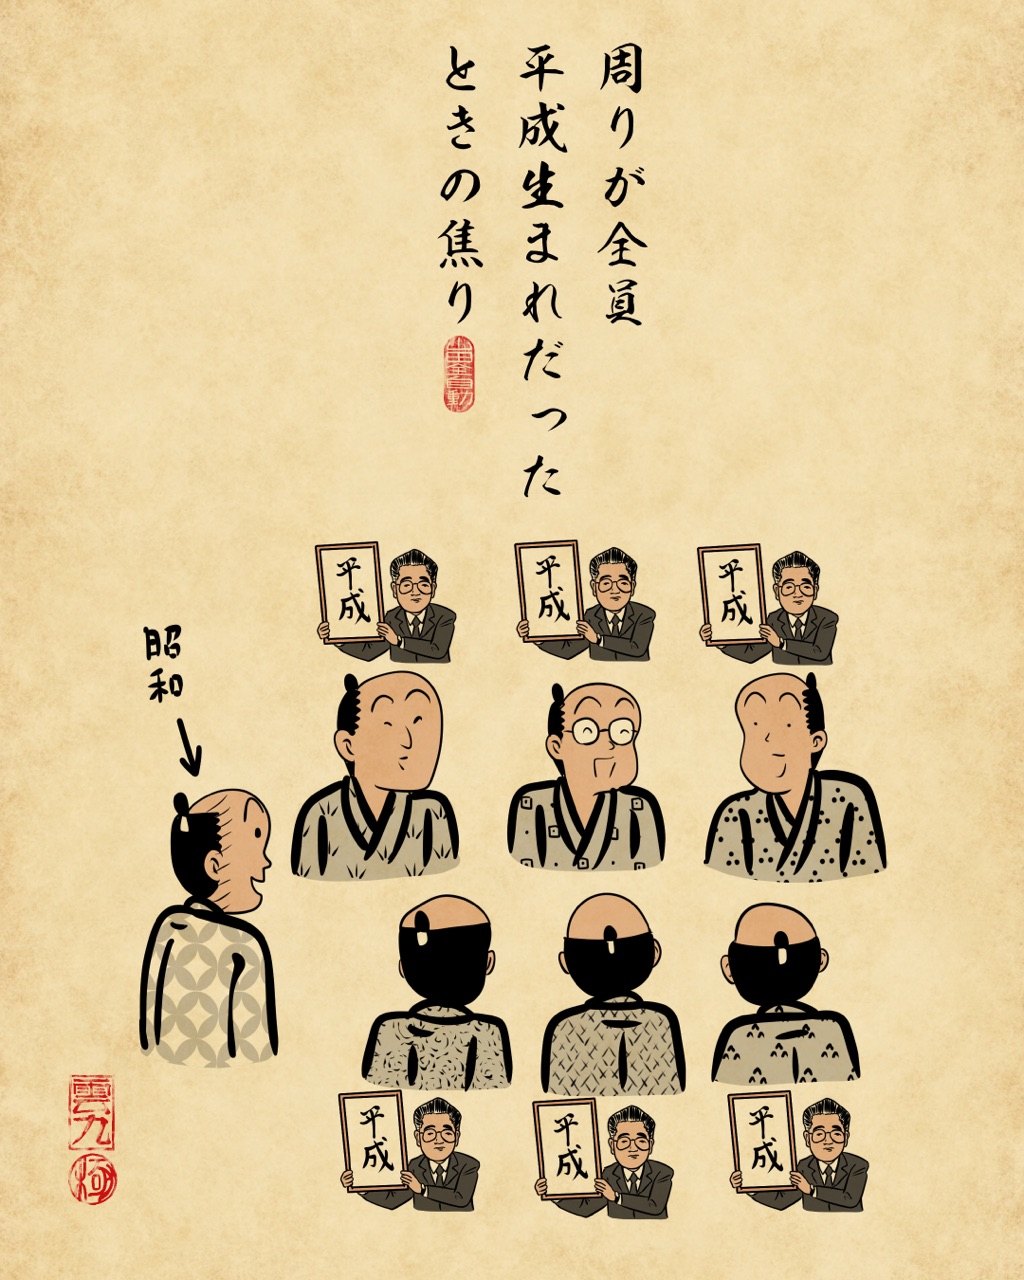 周りが全員
平成生まれだった
ときの焦り
平成
平成
平成
昭和
平成
平成
平成